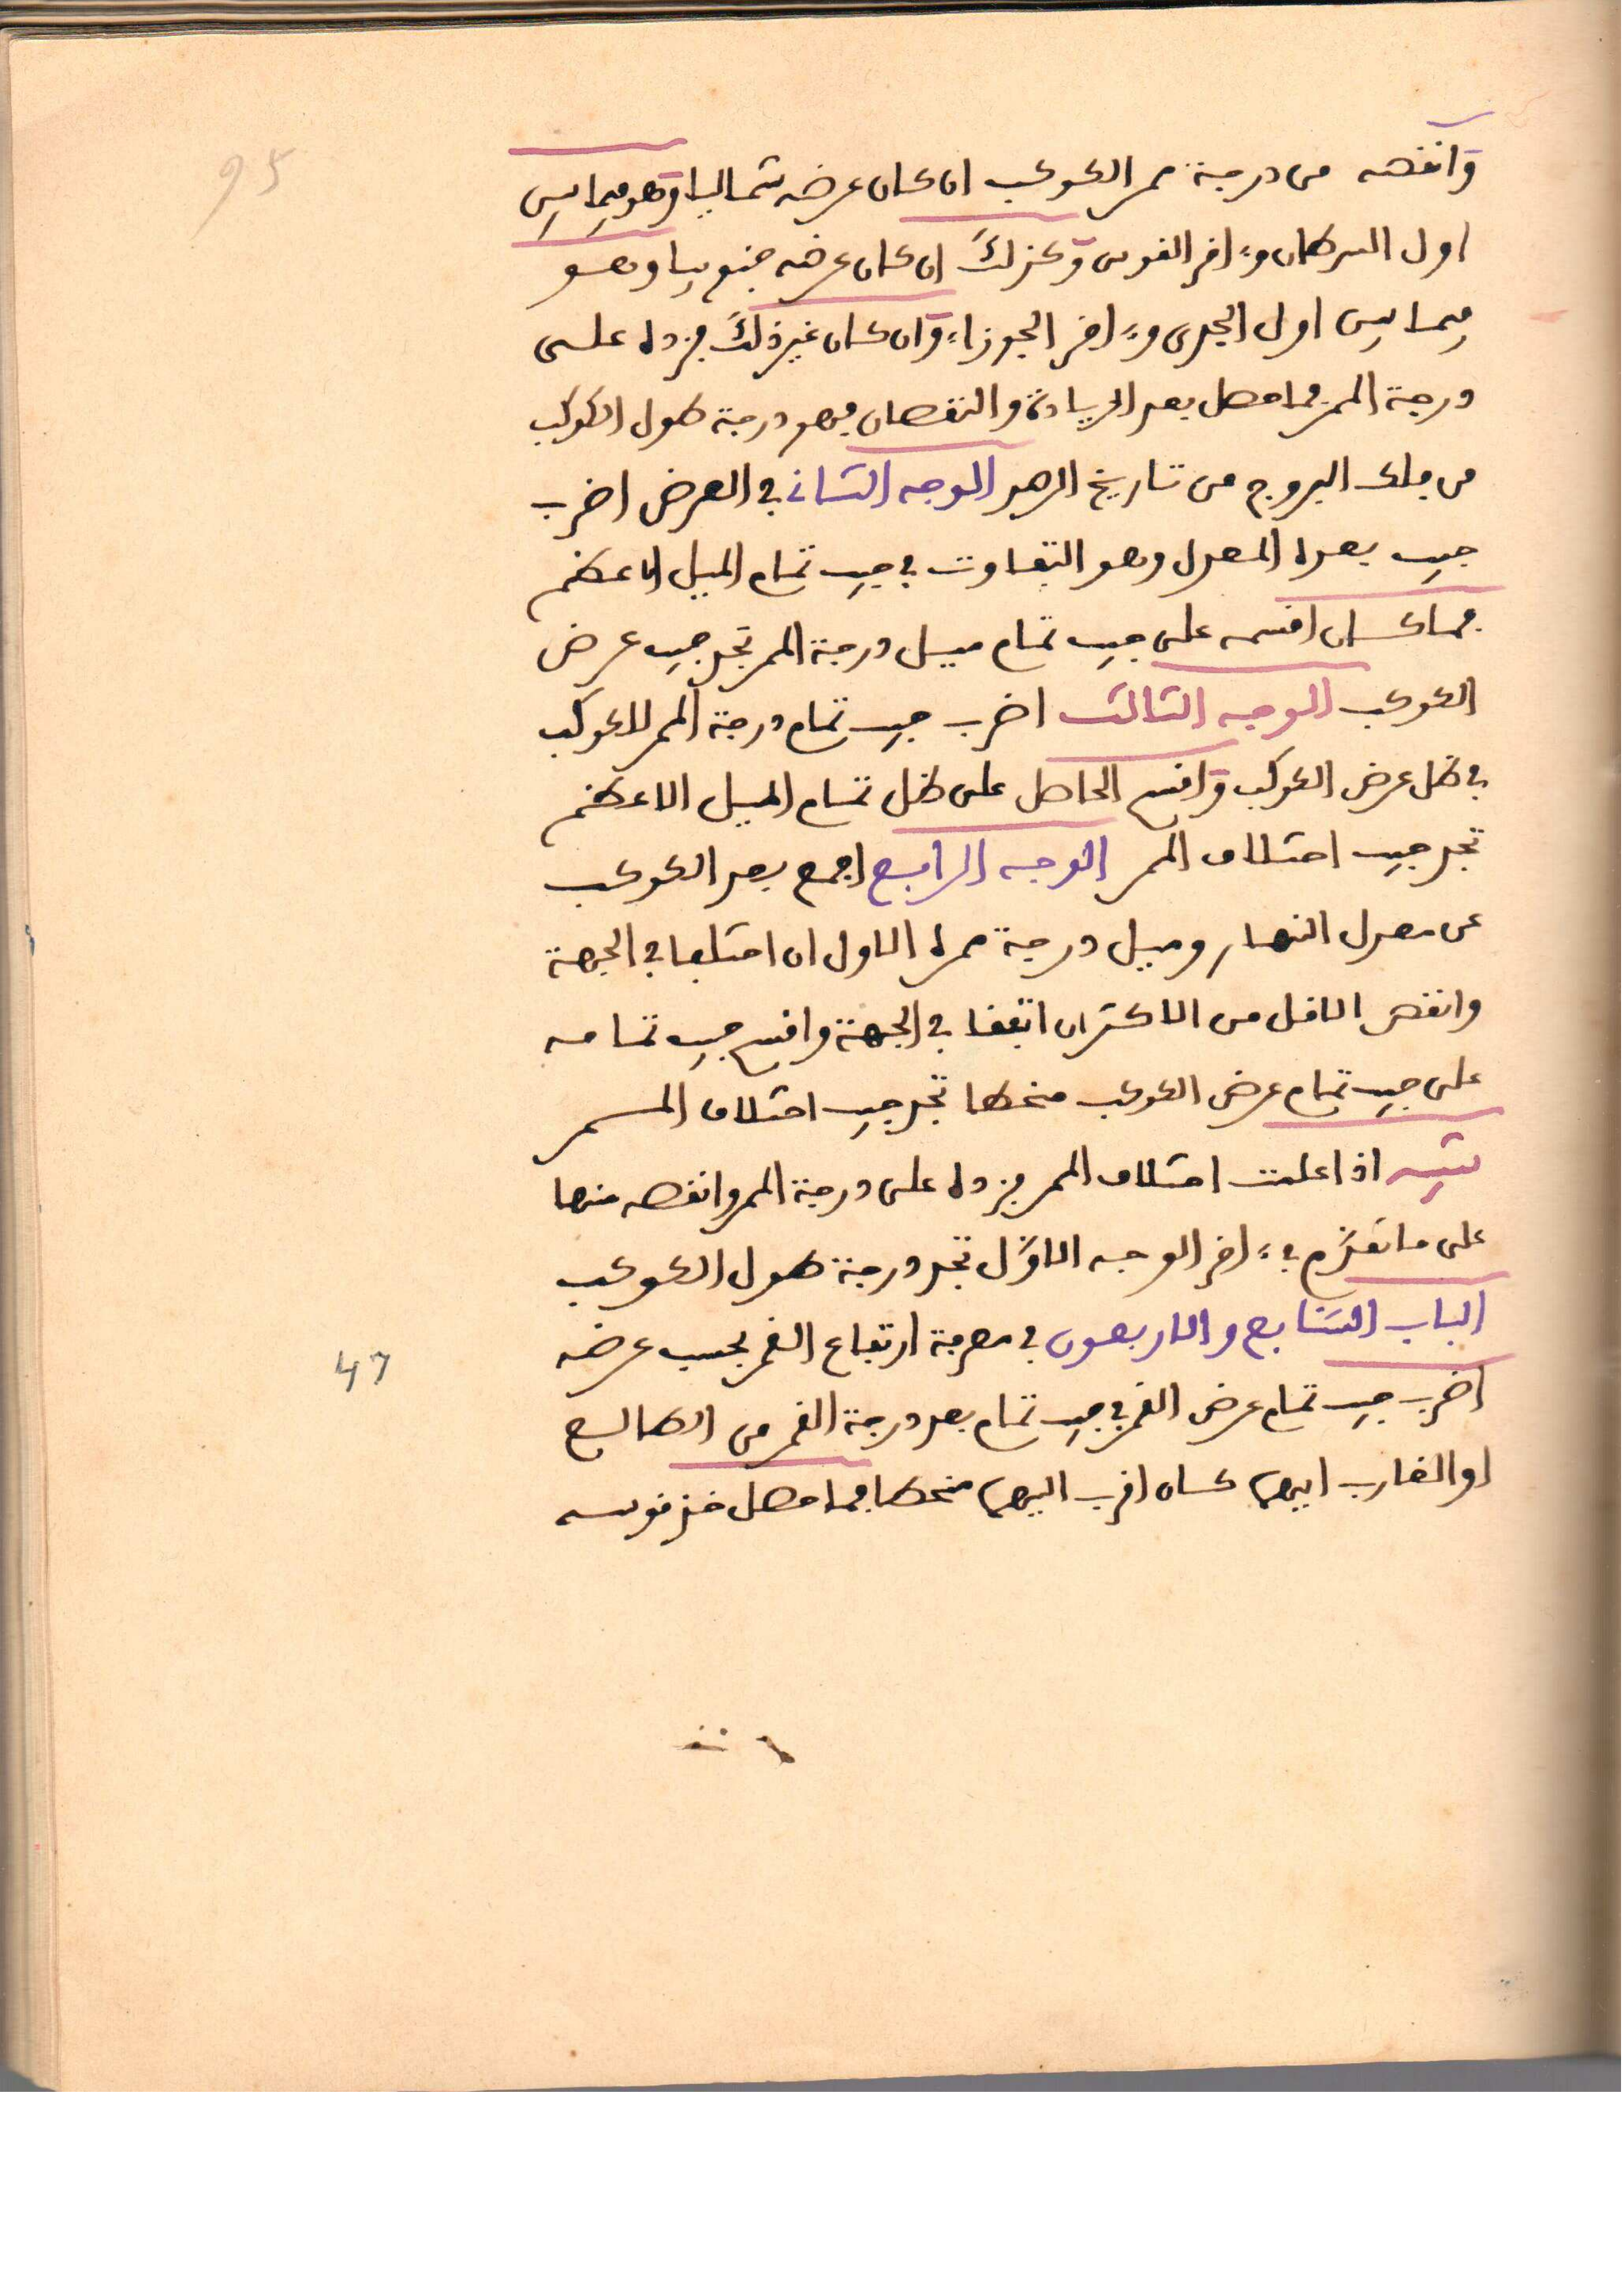 95
وانقصه من درجة ممر الكوكب ان كان عرضه شماليا وهو فيما بين
اول السرطان وءاخر القوس وكذلك ان كان عرضه جنوبيا وهو
فيما بين اول الجدي وءاخر الجوزاء وان كان غير ذلك فزده على
درجة الممر فما حصل بعد الزيادة والنقصان فهو درجة طول الكوكب
من فلك البروج من تاريخ الرصد الوجه الثاني في العرض اضرب
جيب بعده المعدل وهو التفاوت في جيب تمام الميل الاعظم
فما كان اقسمه على جيب تمام ميل درجة الممر تجد جيب عرض
الكوكب الوجه الثالث اضرب جيب تمام درجة الممر للكوكب
في ظل عرض الكوكب واقسم الحاصل على ظل تمام الميل الاعظم
تجد جيب اختلاف الممر الوجه الرابع اجمع بعد الكوكب
عن معدل النهار وميل درجة ممره الاول ان اختلفا في الجهة
وانقص الاقل من الاكثر ان اتفقا في الجهة واقسم جيب تمامه
على جيب تمام عرض الكوكب منحطا تجد جيب اختلاف الممر
تنبيه اذا علمت اختلاف الممر فزده على درجة الممر وانقصه منها
على ما تقدم في ءاخر الوجه الاول تجد درجة طول الكوكب
الباب السابع والاربعون في معرفة ارتفاع القمر بحسب عرضه
47
اضرب جيب تمام عرض القمر في جيب تمام بعد درجة القمر من الطالع
او الغارب ايهما كان اقرب اليهما منحطا فما حصل خذ قوسه